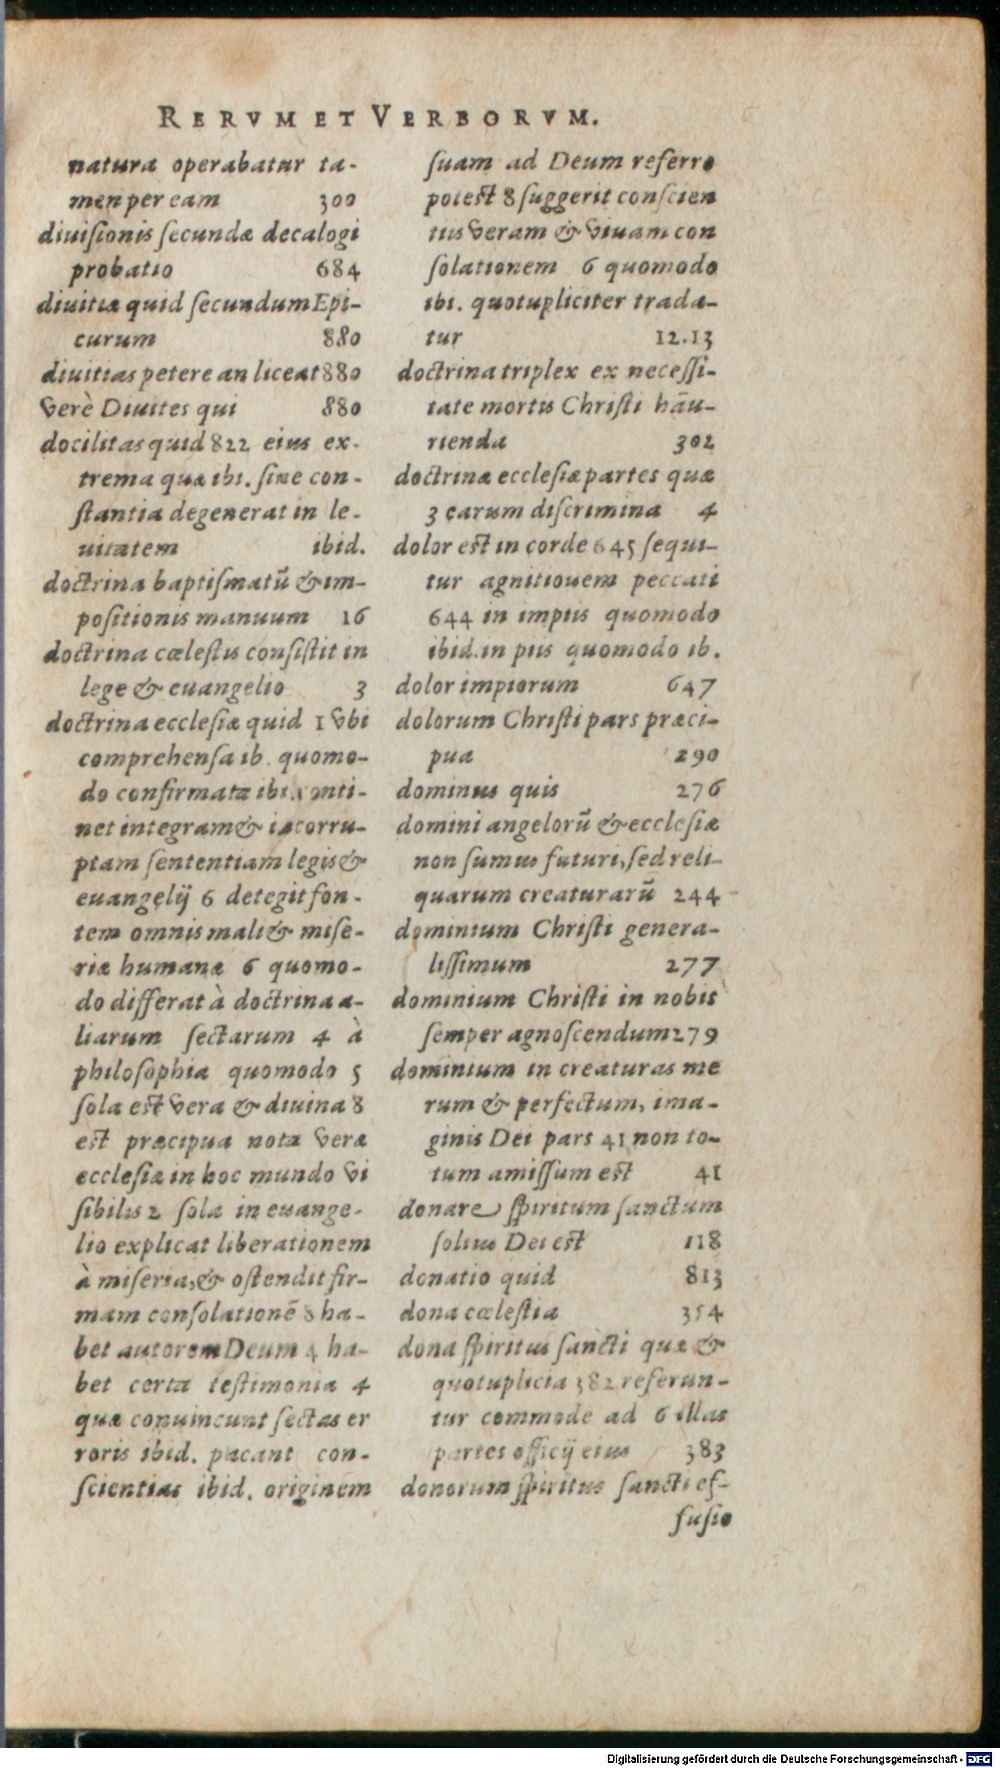 RERVM ET VERBORVM.
natura operabatur ta-
men per eam 300
diuisionis secundæ decalogi
probatio 684
diuitiæ quid secundum Epi-
curum 880
diuitias petere an liceat 880
verè Diuites qui 880
docilitas quid 822 eius ex-
trema quæ ibi. sine con-
stantia degenerat in le-
uitatem ibid.
doctrina baptismatū & im-
positionis manuum 16
doctrina cœlestis consistit in
lege & euangelio 3
doctrina ecclesiæ quid 1 vbi
comprehensa ib. quomo-
do confirmata ibi. conti-
net integram & incorru-
ptam sententiam legis &
euangelij 6 detegit fon-
tem omnis mali & mise-
riæ humanæ 6 quomo-
do differat à doctrina a-
liarum sectarum 4 à
philosophia quomodo 5
sola est vera & diuina 8
est præcipua nota veræ
ecclesiæ in hoc mundo vi
sibilis 2 sola in euange-
lio explicat liberationem
à miseria, & ostendit fir-
mam consolationē 8 ha-
bet autorem Deum 4 ha-
bet certa testimonia 4
quæ conuincunt sectas er
roris ibid. pacant con-
scientias ibid. originem
suam ad Deum referre
potest 8 suggerit conscien
tiis veram & viuam con
solationem 6 quomodo
ibi. quotupliciter trada-
tur 12.13
doctrina triplex ex necessi-
tate mortis Christi hau-
rienda 302
doctrinæ ecclesiæ partes quæ
3 earum discrimina 4
dolor est in corde 645 sequi-
tur agnitiouem peccati
644 in impiis quomodo
ibid. in piis quomodo ib.
dolor impiorum 647
dolorum Christi pars præci-
pua 290
dominus quis 276
domini angelorū & ecclesiæ
non sumus futuri, sed reli-
quarum creaturarū 244
dominium Christi genera-
lissimum 277
dominium Christi in nobis
semper agnoscendum 279
dominium in creaturas me
rum & perfectum, ima-
ginis Dei pars 41 non to-
tum amissum est 41
donare spiritum sanctum
solius Dei est 118
donatio quid 813
dona cœlestia 354
dona spiritus sancti quæ &
quotuplicia 382 referun-
tur commode ad 6 illas
partes officij eius 383
donorum spiritus sancti ef-
fusio
Digitalisierung gefördert durch die Deutsche Forschungsgemeinschaft - DFG